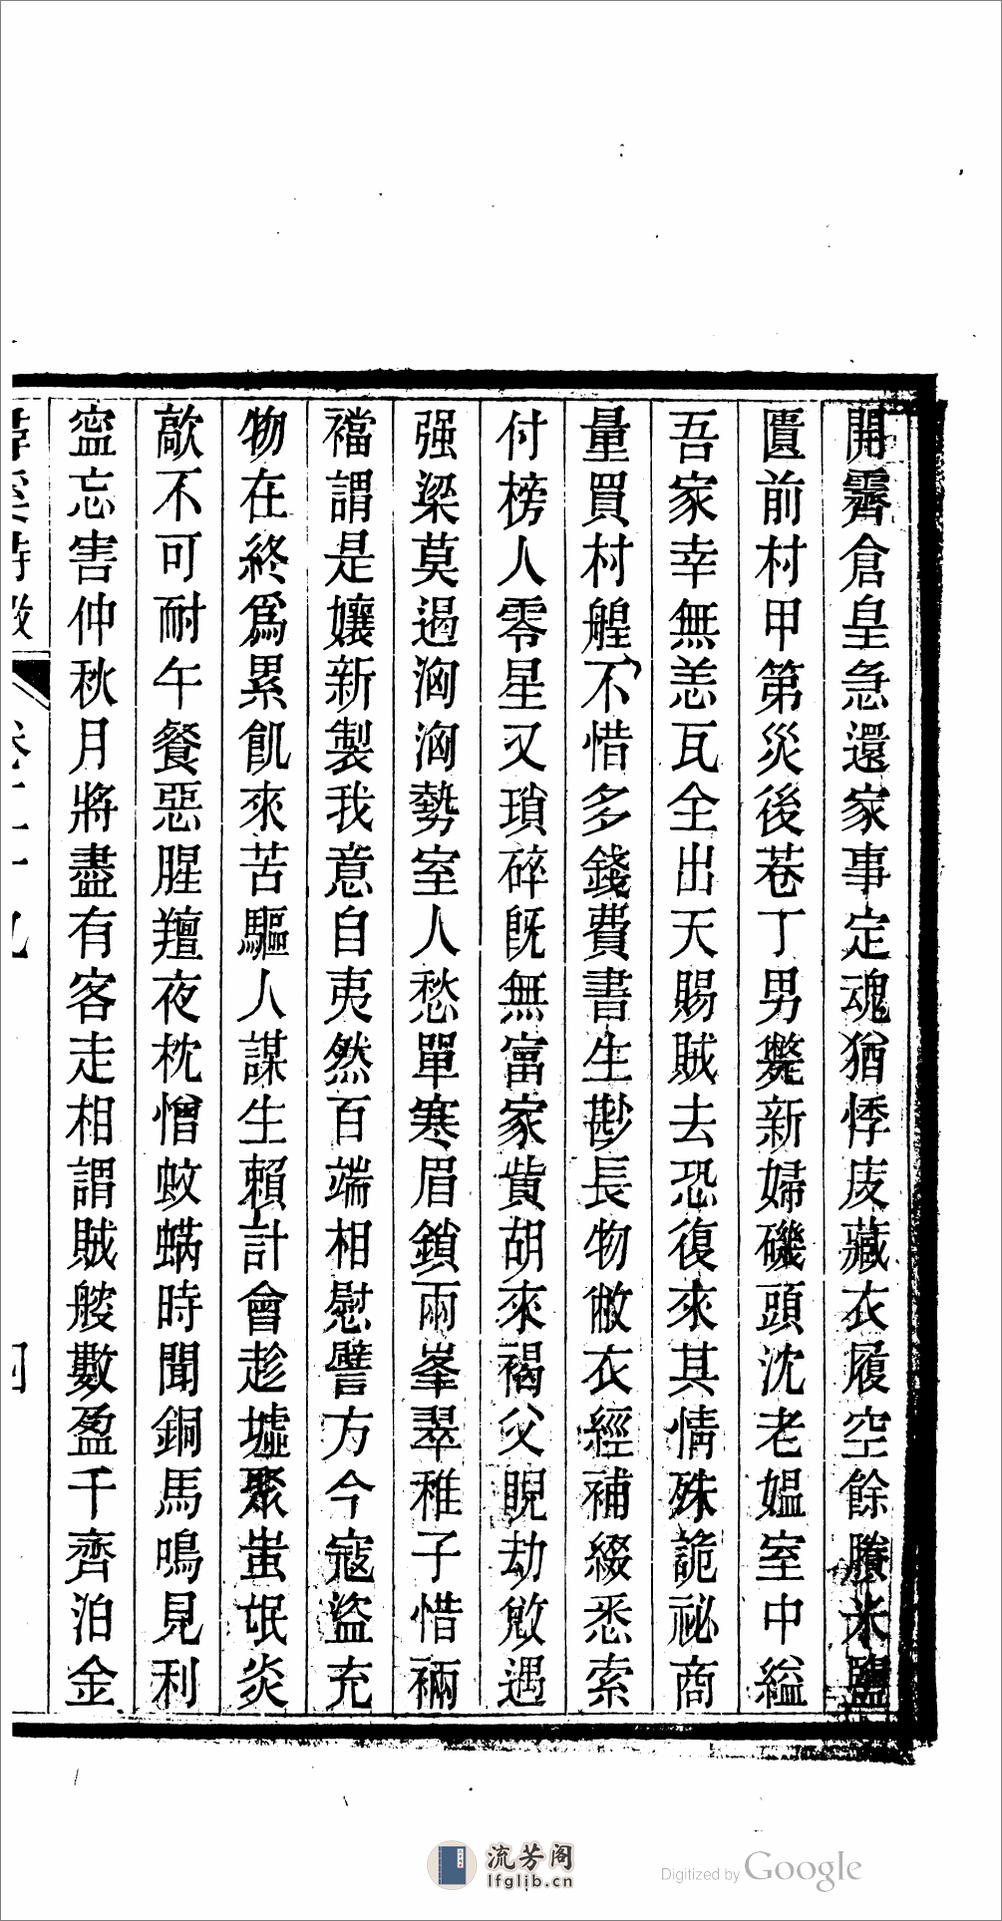 開霽倉皇急還家事定魂猶悸庋藏衣履空餘賸米鹽
匱前村甲第災後巷丁男斃新婦磯頭沈老媼室中縊
吾家幸無恙瓦全出天賜賊去恐復來其情殊詭祕商
量買村艎不惜多錢費書生尠長物敝衣經補綴悉索
付榜人零星又瑣碎旣無富家貲胡來褐父睨劫敓遇
强梁莫遏洶洶勢室人愁單寒眉鎖兩峯翠稚子惜裲
襠謂是孃新製我意自夷然百端相慰譬方今寇盜充
物在終爲累飢來苦驅人謀生賴計會趁墟聚蚩氓炎
歊不可耐午餐惡腥羶夜枕憎蚊蟎時聞銅馬鳴見利
寍忘害仲秋月將盡有客走相謂賊艘數盈千齊泊金
卷二十九
四
流芳阁
lfglib.cn
Digitized by Google